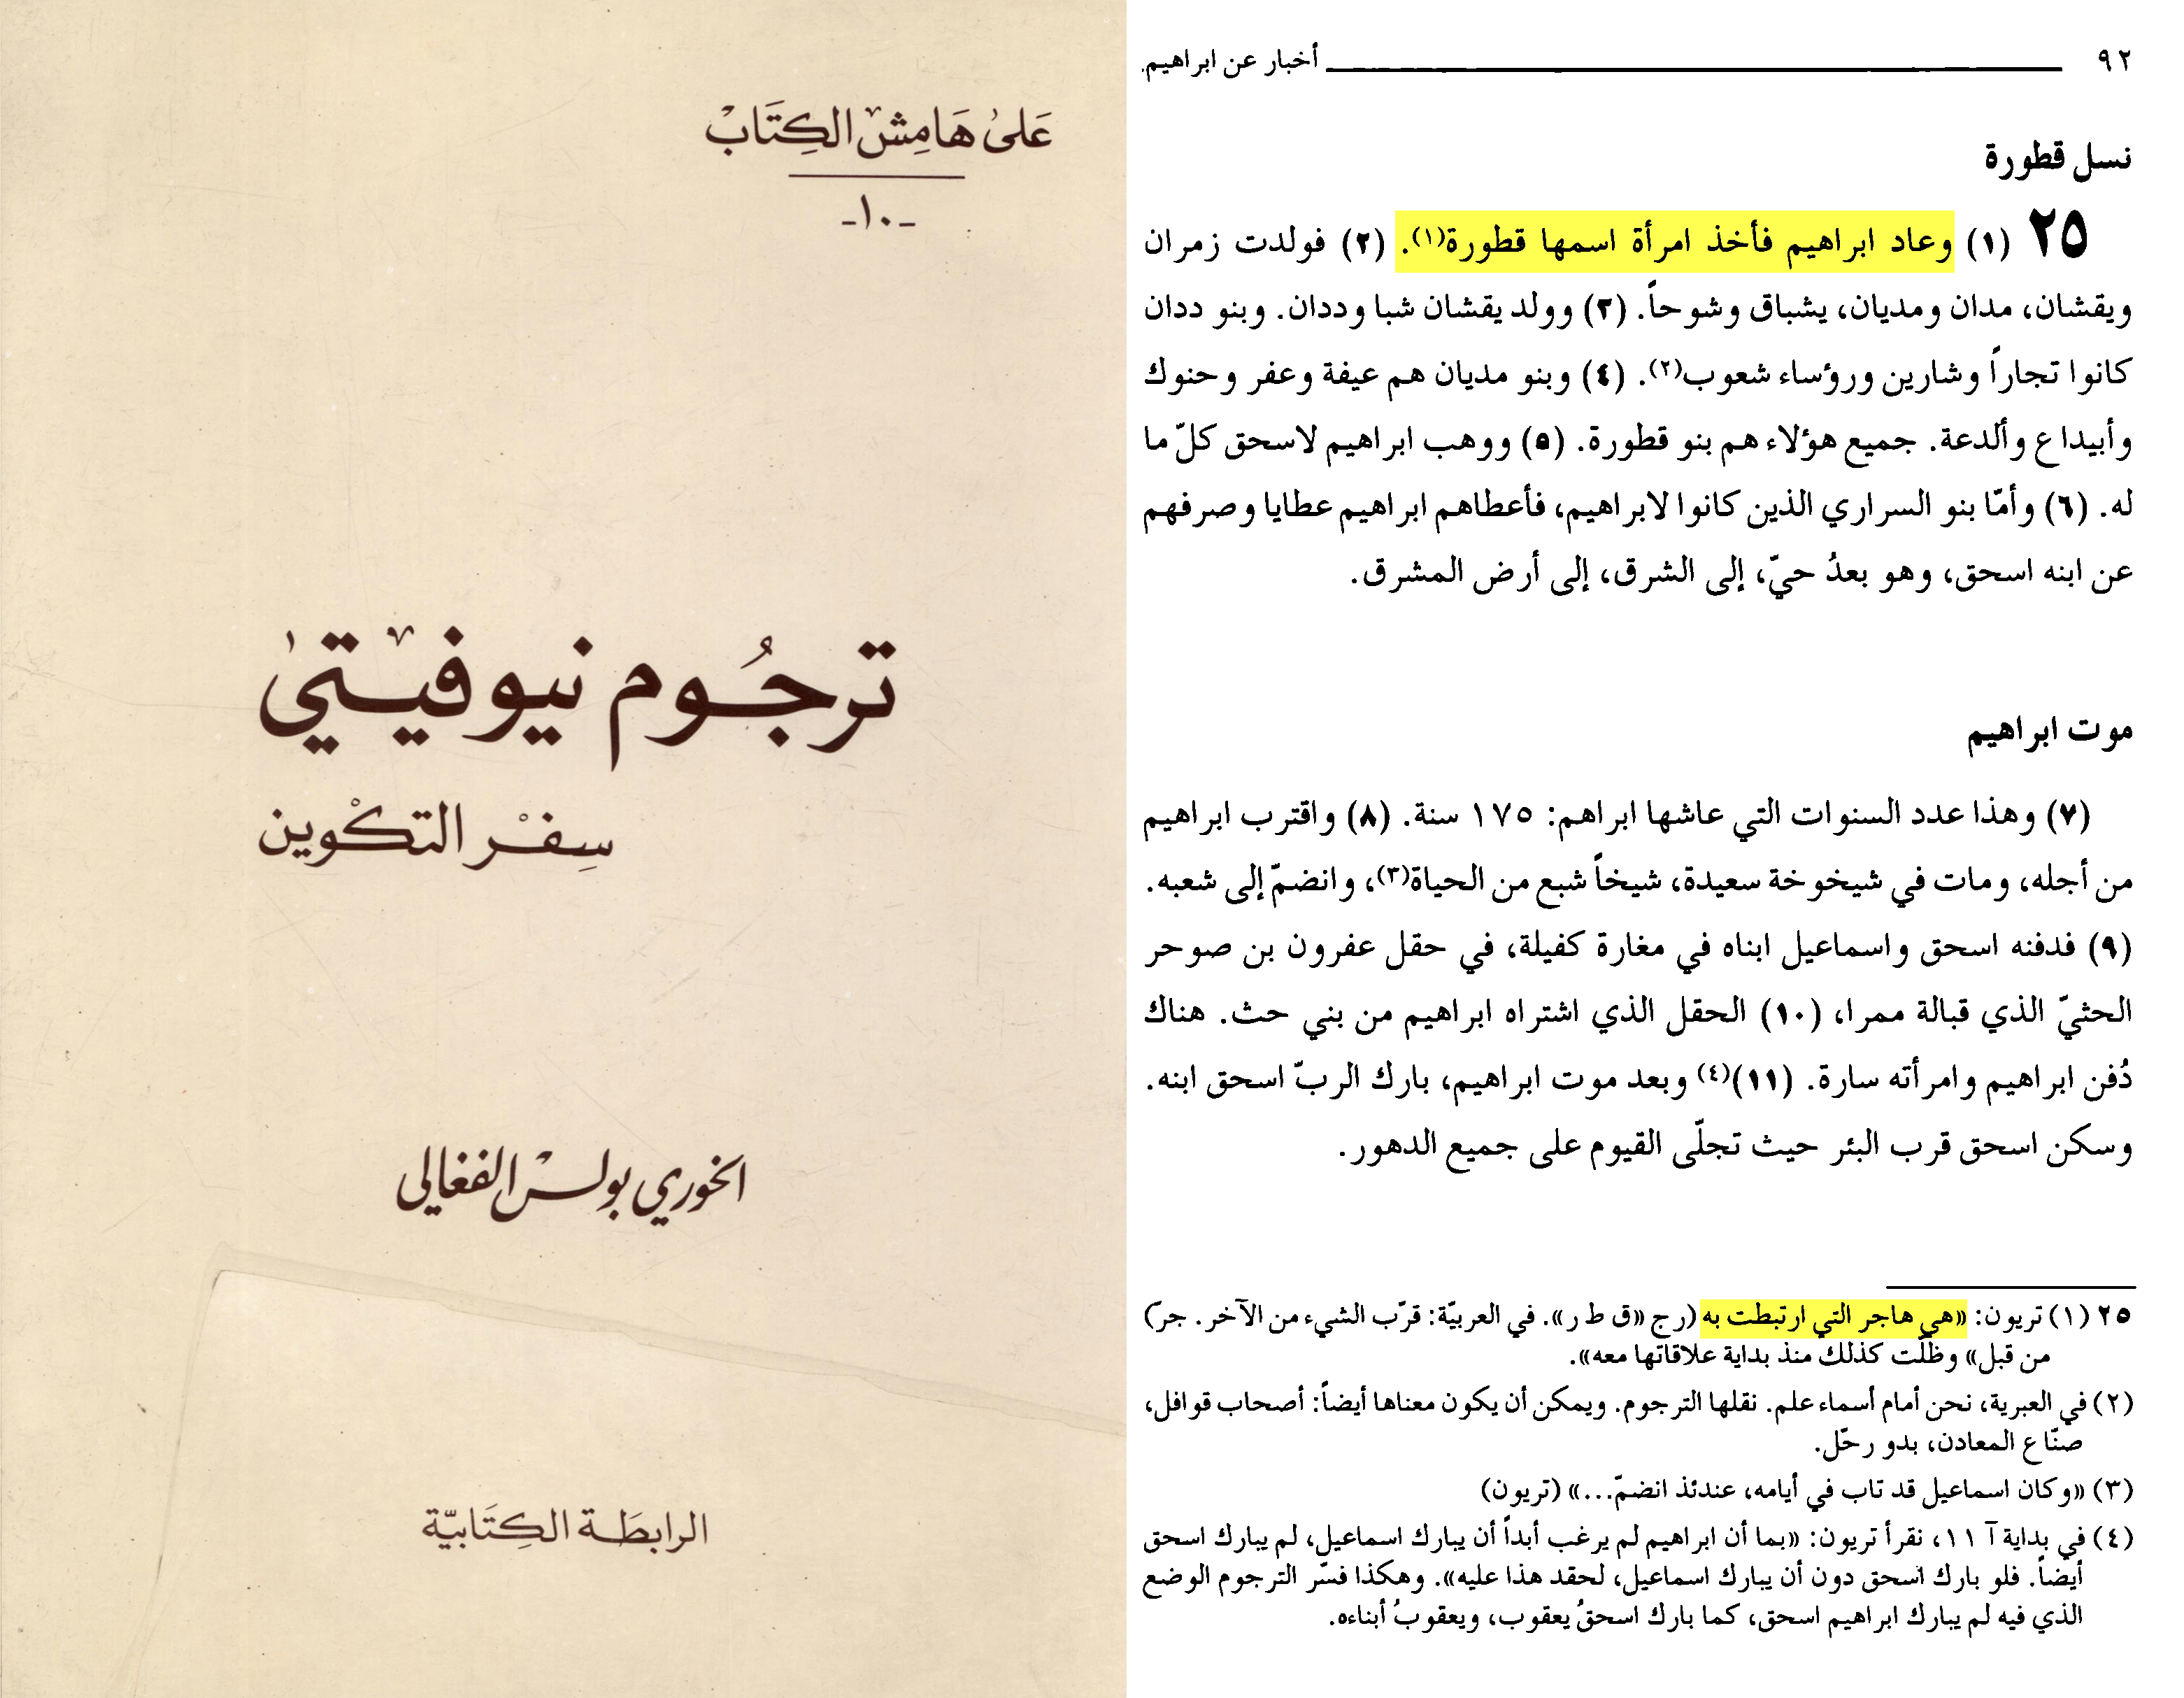 عَلىٰ هَامِشْ الكِتَابْ
-١٠-
ترجُوم نيوفيتي
سِفْر التكْوين
الخوري بولس الفغالي
الرابطَة الكِتَابيّة
٩٢ أخبار عن ابراهيم.
نسل قطورة
٢٥ (١) وعاد ابراهيم فأخذ امرأة اسمها قطورة(١). (٢) فولدت زمران
ويقشان، مدان ومديان، يشباق وشوحاً. (٣) وولد يقشان شبا وددان. وبنو ددان
كانوا تجاراً وشارين ورؤساء شعوب(٢). (٤) وبنو مديان هم عيفة وعفر وحنوك
وأبيداع وألدعة. جميع هؤلاء هم بنو قطورة. (٥) ووهب ابراهيم لاسحق كلّ ما
له. (٦) وأمّا بنو السراري الذين كانوا لابراهيم، فأعطاهم ابراهيم عطايا وصرفهم
عن ابنه اسحق، وهو بعدُ حيّ، إلى الشرق، إلى أرض المشرق.
موت ابراهيم
(٧) وهذا عدد السنوات التي عاشها ابراهم: ١٧٥ سنة. (٨) واقترب ابراهيم
من أجله، ومات في شيخوخة سعيدة، شيخاً شبع من الحياة(٣)، وانضمّ إلى شعبه.
(٩) فدفنه اسحق واسماعيل ابناه في مغارة كفيلة، في حقل عفرون بن صوحر
الحثيّ الذي قبالة ممرا، (١٠) الحقل الذي اشتراه ابراهيم من بني حث. هناك
دُفن ابراهيم وامرأته سارة. (١١)(٤) وبعد موت ابراهيم، بارك الربّ اسحق ابنه.
وسكن اسحق قرب البئر حيث تجلّى القيوم على جميع الدهور.
٢٥ (١) تريون: «هي هاجر التي ارتبطت به (رج «ق ط ر». في العربيّة: قرّب الشيء من الآخر. جرّ)
من قبل» وظلّت كذلك منذ بداية علاقاتها معه».
(٢) في العبرية، نحن أمام أسماء علم. نقلها الترجوم. ويمكن أن يكون معناها أيضاً: أصحاب قوافل،
صنّاع المعادن، بدو رحّل.
(٣) «وكان اسماعيل قد تاب في أيامه، عندئذ انضمّ...» (تريون)
(٤) في بداية آ ١١، نقرأ تريون: «بما أن ابراهيم لم يرغب أبداً أن يبارك اسماعيل، لم يبارك اسحق
أيضاً. فلو بارك اسحق دون أن يبارك اسماعيل، لحقد هذا عليه». وهكذا فسّر الترجوم الوضع
الذي فيه لم يبارك ابراهيم اسحق، كما بارك اسحقُ يعقوب، ويعقوبُ أبناءه.